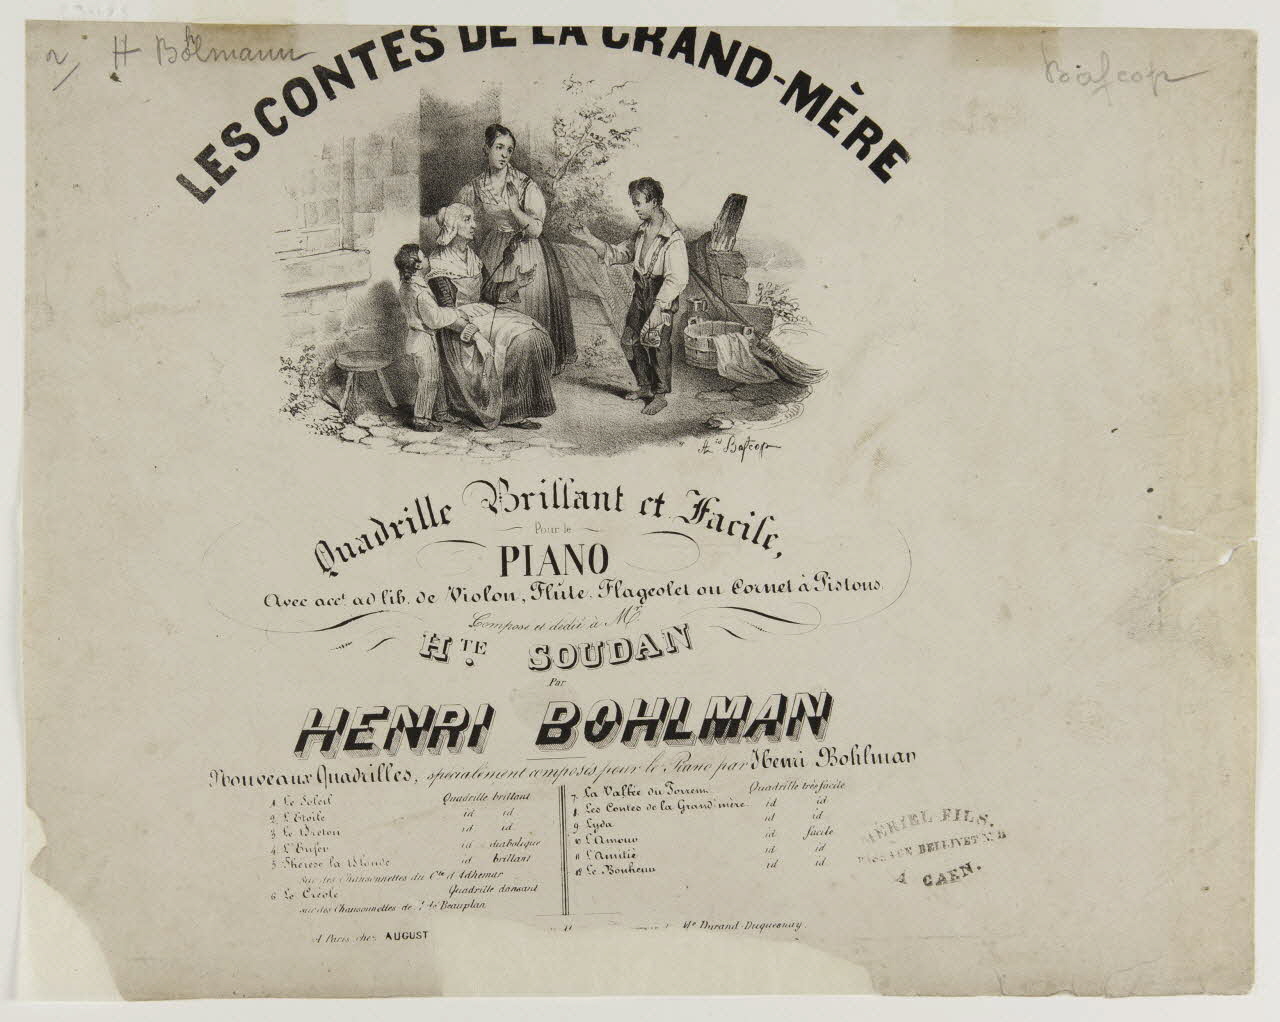 H Bohlmann
Bafcop
LES CONTES DE LA GRAND-MÈRE
Hid Bafcop
Quadrille Brillant et Facile,
Pour le
PIANO
Avec acct. ad lib. de Violon, Flûte, Flageolet ou Cornet à Pistons.
Composé et dédié à Mr
HTE. SOUDAN
Par
HENRI BOHLMAN
Nouveaux Quadrilles, spécialement composés pour le Piano par Henri Bohlman
1. Le Soleil Quadrille brillant
2. L'Etoile id id
3. Le Breton id id
4. L'Enfer id diabolique
5. Thérèse la Blonde id brillant
sur des Chansonnettes du Cte d'Adhemar
6. Le Créole Quadrille dansant
sur des Chansonnettes de Beauplan
7. La Vallée du Torrent Quadrille très facile
8. Les Contes de la Grand'mère id id
9. Lyda id id
10. L'Amour id facile
11. L'Amitié id id
12. Le Bonheur id id
MÉRIEL FILS.
PASSAGE BELLIVET N. 11
A CAEN.
A Paris chez AUGUST
Durand-Duquesnay.